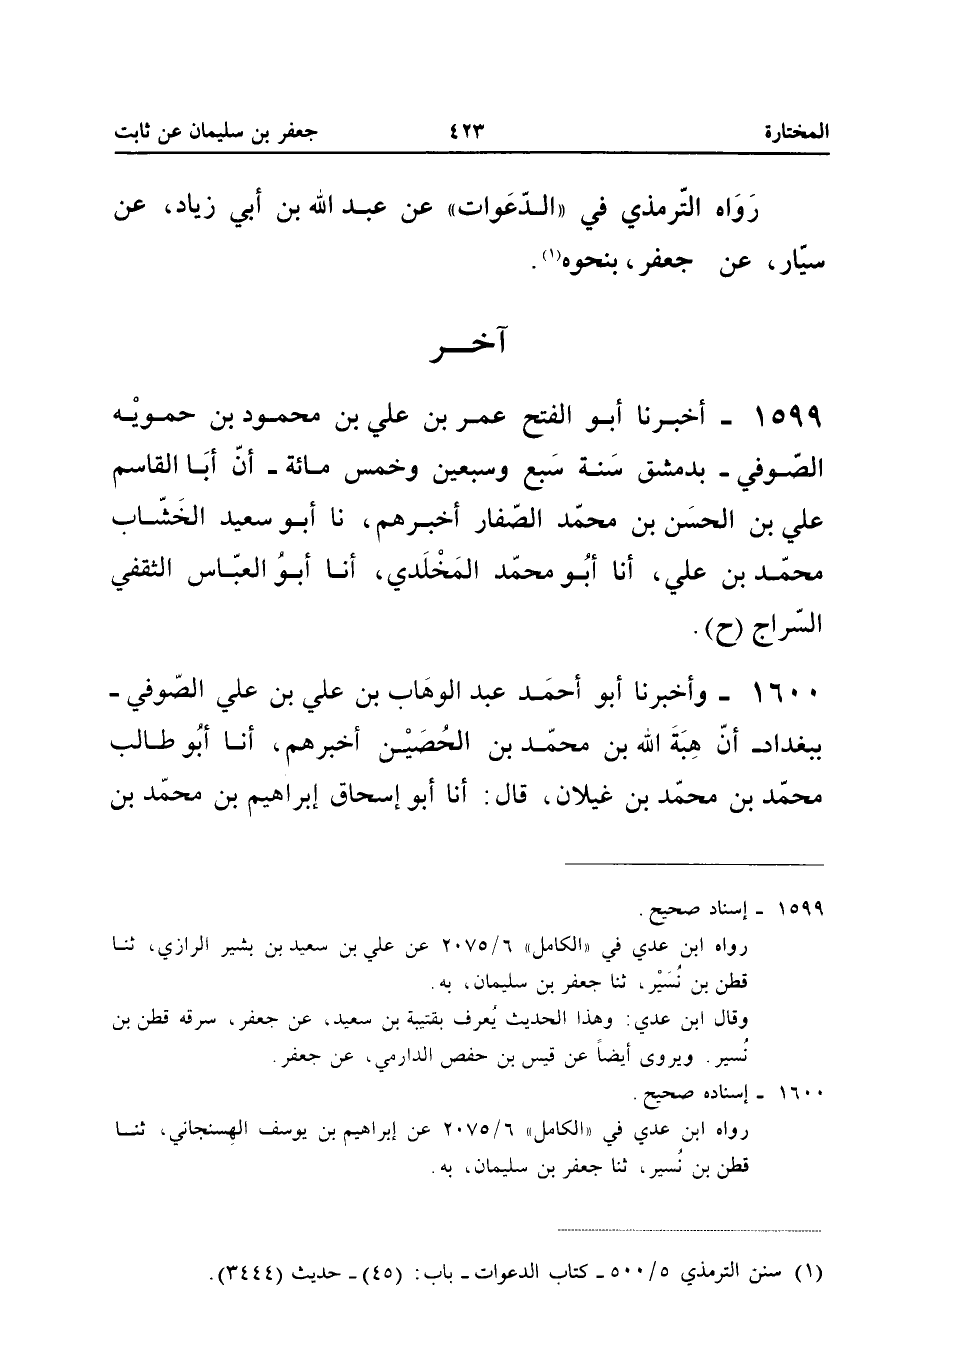 المختارة ٤٢٣ جعفر بن سليمان عن ثابت
رَوَاه التّرمذي في «الـدّعَوات» عن عبـد الله بن أبي زياد، عن
سيّار، عن جعفر، بنحوه(١).
آخـــر
١٥٩٩ ـ أخبـرنا أبـو الفتح عمـر بن علي بن محمـود بن حمـويْـه
الصّـوفي ـ بدمشق سَنـة سَبع وسبعين وخمس مـائة ـ أنّ أبَـا القاسم
علي بن الحسَن بن محمّد الصّفار أخبـرهم، نا أبـو سعيد الخَشّـاب
محمّـد بن علي، أنا أبُـو محمّد المَخْلَدي، أنـا أبـوُ العبّـاس الثقفي
السّراج (ح).
١٦٠٠ ـ وأخبرنا أبو أحمَـد عبد الوهَاب بن علي بن علي الصّوفي ـ
ببغداد ـ أنّ هِبَةَ الله بن محمّـد بن الحُصَيْـن أخبرهم، أنـا أبُو طـالب
محمّد بن محمّد بن غيلان، قال: أنا أبو إسحاق إبراهيم بن محمّد بن
١٥٩٩ ـ إسناد صحيح.
رواه ابن عدي في «الكامل» ٢٠٧٥/٦ عن علي بن سعيد بن بشير الرازي، ثنـا
قطن بن نُسَيْر، ثنا جعفر بن سليمان، به.
وقال ابن عدي: وهذا الحديث يُعرف بقتيبة بن سعيد، عن جعفر، سرقه قطن بن
نُسير. ويروى أيضاً عن قيس بن حفص الدارمي، عن جعفر.
١٦٠٠ ـ إسناده صحيح.
رواه ابن عدي في «الكامل» ٢٠٧٥/٦ عن إبراهيم بن يوسف الهِسنجاني، ثنـا
قطن بن نُسير، ثنا جعفر بن سليمان، به.
(١) سنن الترمذي ٥٠٠/٥ ـ كتاب الدعوات ـ باب: (٤٥) ـ حديث (٣٤٤٤).